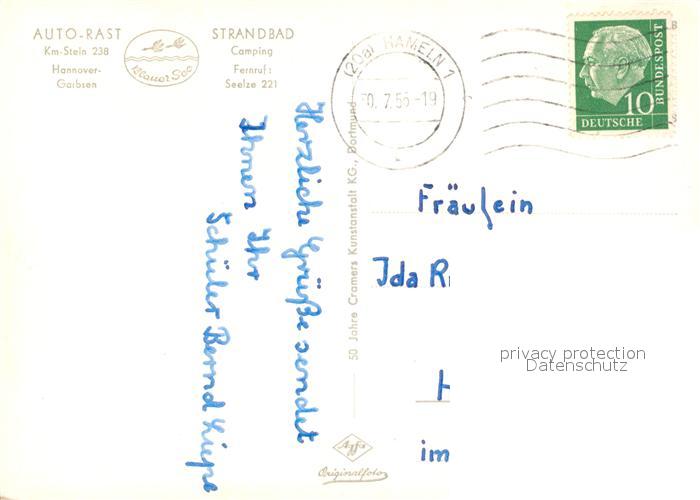 AUTO-RAST
Km-Stein 238
Hannover-
Garbsen
Blauer See
STRANDBAD
Camping
Fernruf:
Seelze 221
(20a) HAMELN 1
0. 7. 56 -19
10
DEUTSCHE
BUNDESPOST
Herzliche Grüße sendet
Ihnen Ihr
Schüler Bernd Liepe
50 Jahre Cramers Kunstanstalt KG., Dortmund
Fräulein
Ida R
H
im
privacy protection
Datenschutz
Agfa
Originalfoto